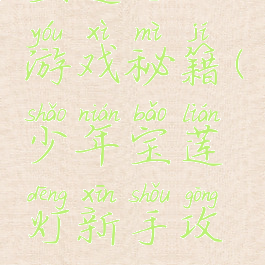 yóu xì mì jí
游戏秘籍(
shào nián bǎo lián
少年宝莲
dēng xīn shǒu gōng
灯新手攻